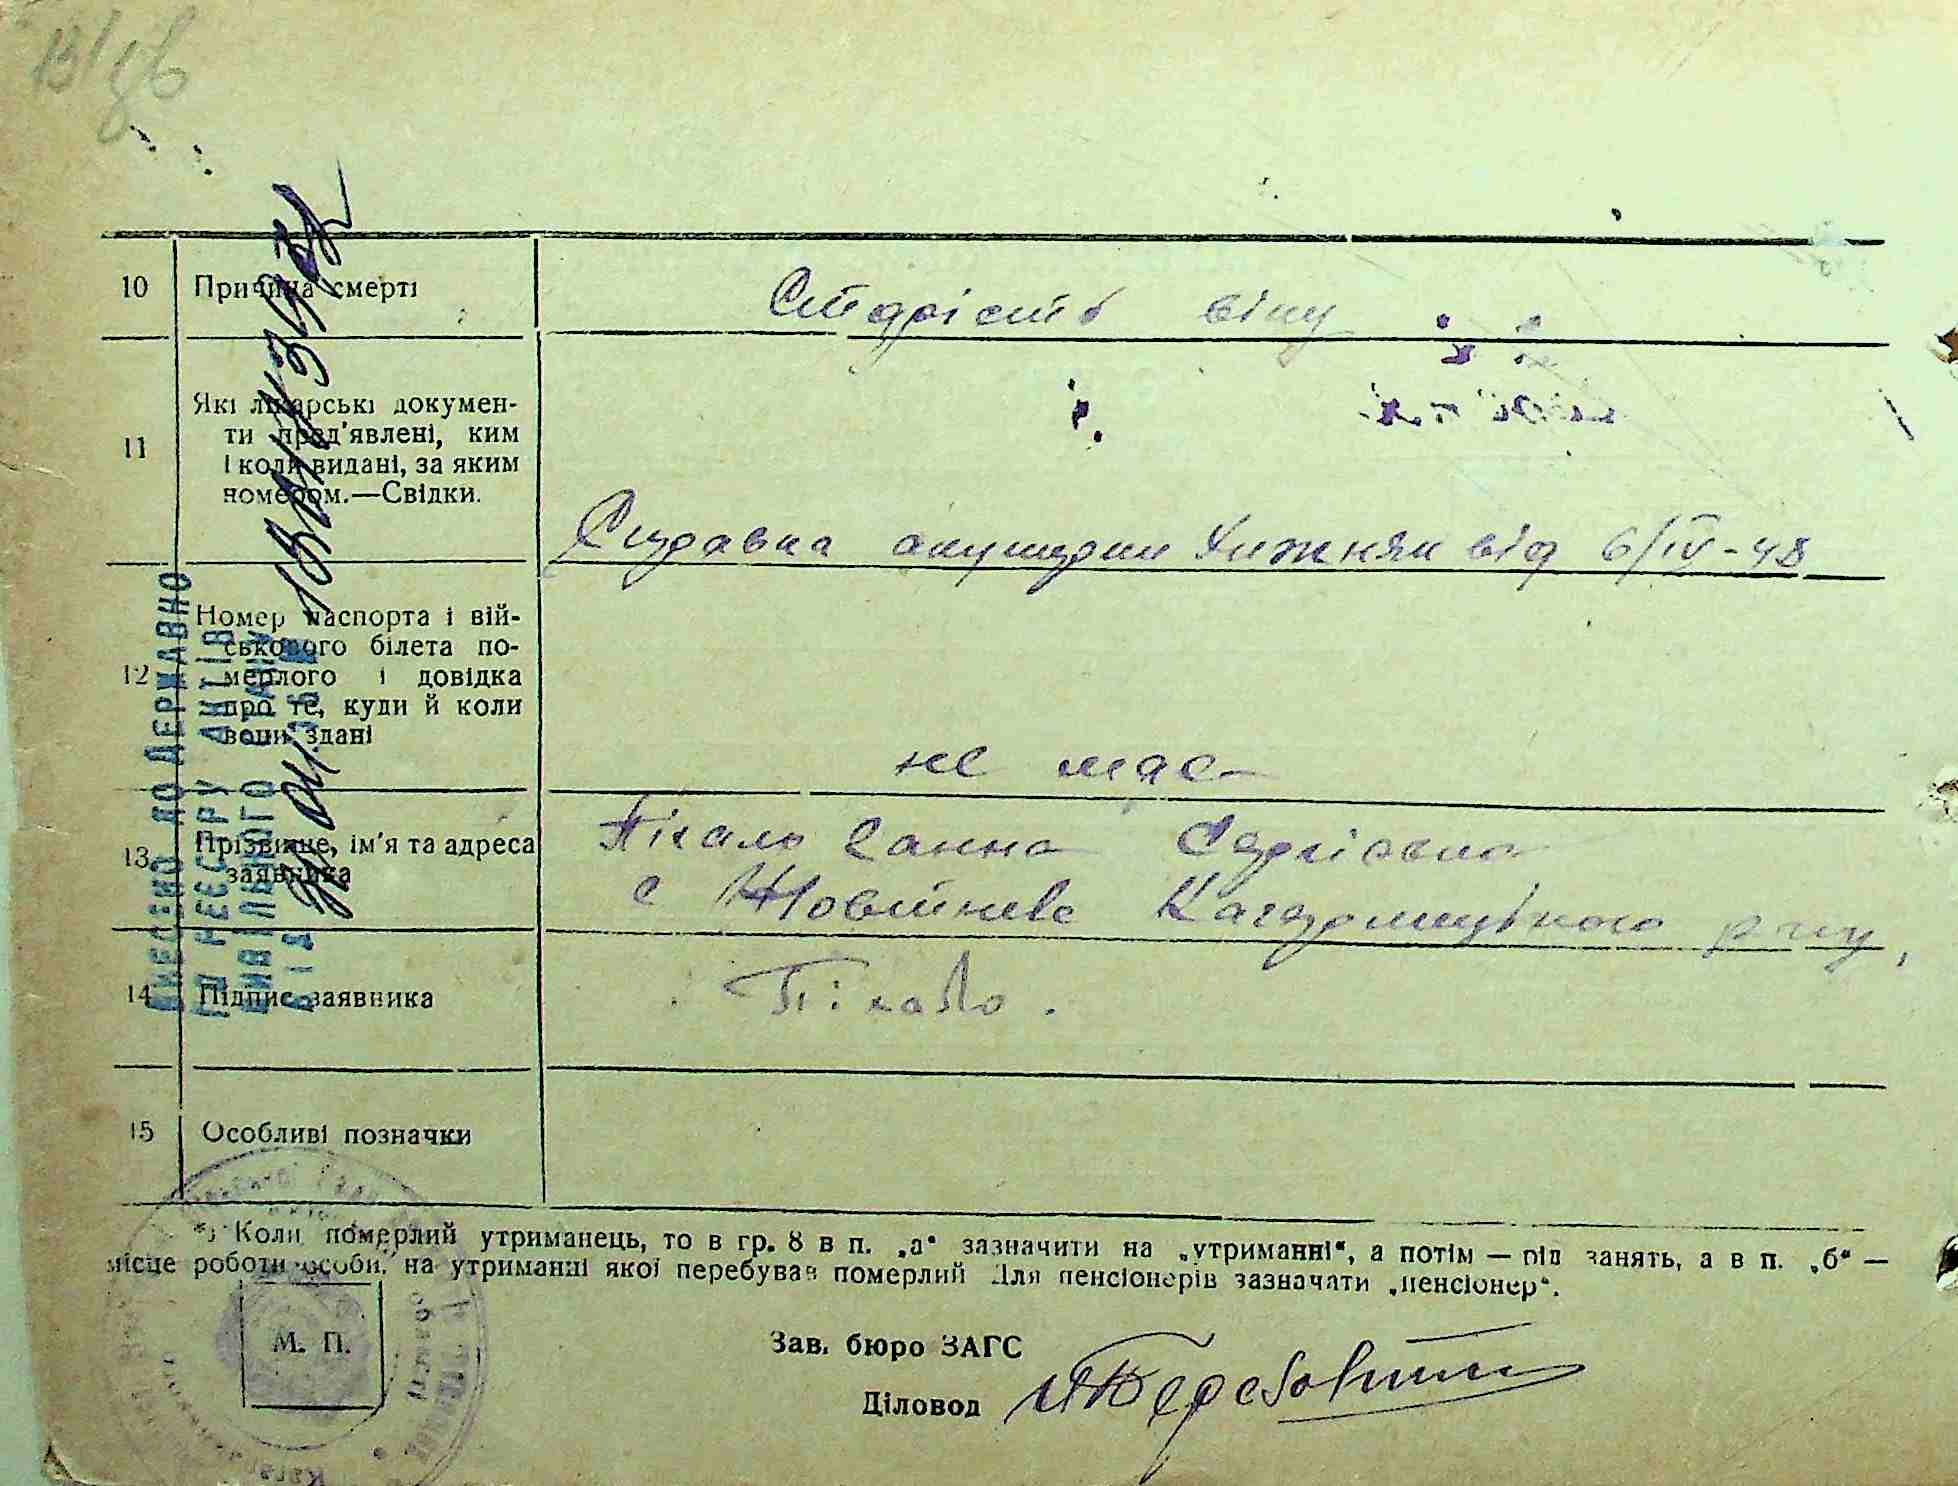 10 Причина смерті
Старість віку
11 Які лікарські докумен-
ти пред'явлені, ким
і коли видані, за яким
номером.—Свідки.
Справка акушерки від 6/IV-48
12 Номер паспорта і вій-
ськового білета по-
мерлого і довідка
про те, куди й коли
вони здані
не має
13 Прізвище, ім'я та адреса
заявника
Пікало Ганна Сергіевна
с Жовтневе р-ну,
14 Підпис заявника
Пікало.
15 Особливі позначки
*) Коли померлий утриманець, то в гр. 8 в п. „а“ зазначити на „утриманні“, а потім — рід занять, а в п. „б“ —
місце роботи особи, на утриманні якої перебував померлий Для пенсіонерів зазначати „пенсіонер“.
М. П.
Зав. бюро ЗАГС
Діловод
ВНЕСЕНО ПО ДЕРЖАВНО
ГО РЕЄСТРУ АКТІВ
ЦИВІЛЬНОГО СТАНУ